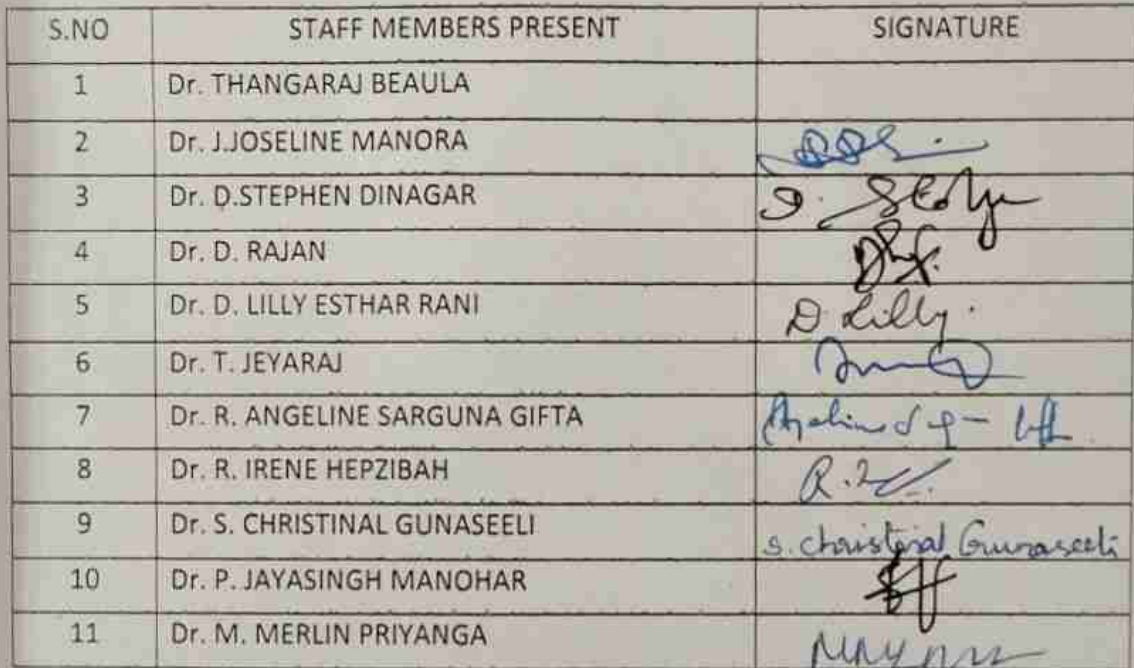 S.NO STAFF MEMBERS PRESENT SIGNATURE
1 Dr. THANGARAJ BEAULA
2 Dr. J.JOSELINE MANORA
3 Dr. D.STEPHEN DINAGAR
4 Dr. D. RAJAN
5 Dr. D. LILLY ESTHAR RANI D Lilly.
6 Dr. T. JEYARAJ
7 Dr. R. ANGELINE SARGUNA GIFTA
8 Dr. R. IRENE HEPZIBAH
9 Dr. S. CHRISTINAL GUNASEELI S. Christinal Gunaseeli
10 Dr. P. JAYASINGH MANOHAR
11 Dr. M. MERLIN PRIYANGA